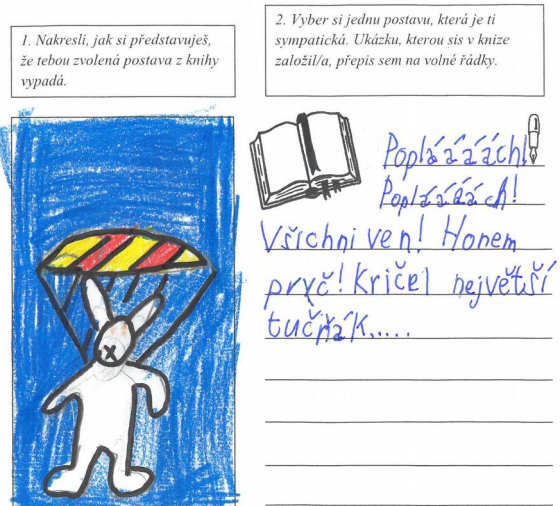 1. Nakresli, jak si představuješ,
že tebou zvolená postava z knihy
vypadá.
2. Vyber si jednu postavu, která je ti
sympatická. Ukázku, kterou sis v knize
založil/a, přepis sem na volné řádky.
Popláááách!
Popláááách!
Všichni ven! Honem
pryč! Kričel největší
tučňák.....